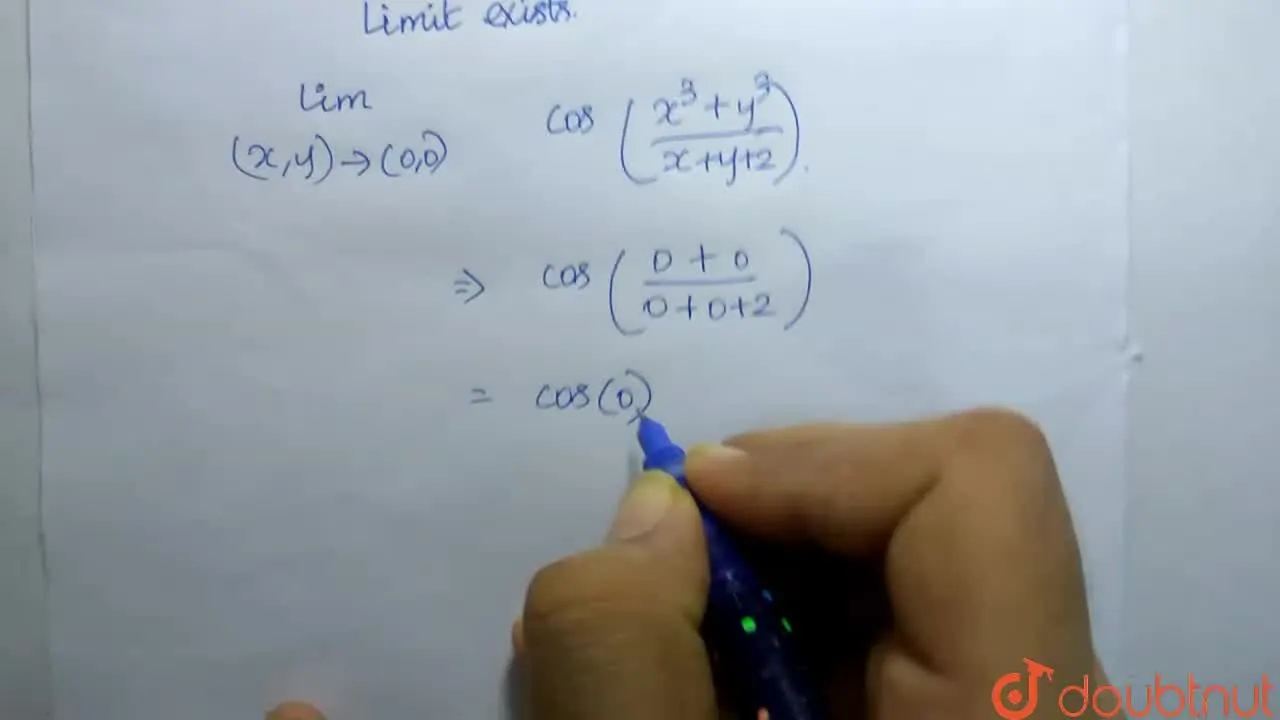 Limit exists.
lim
(x,y)→(0,0)
cos (x³+y³ / x+y+2).
⇒ cos (0+0 / 0+0+2)
= cos(0)
doubtnut